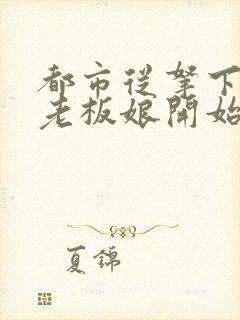 都市從拏下
老板娘開始
夏錦